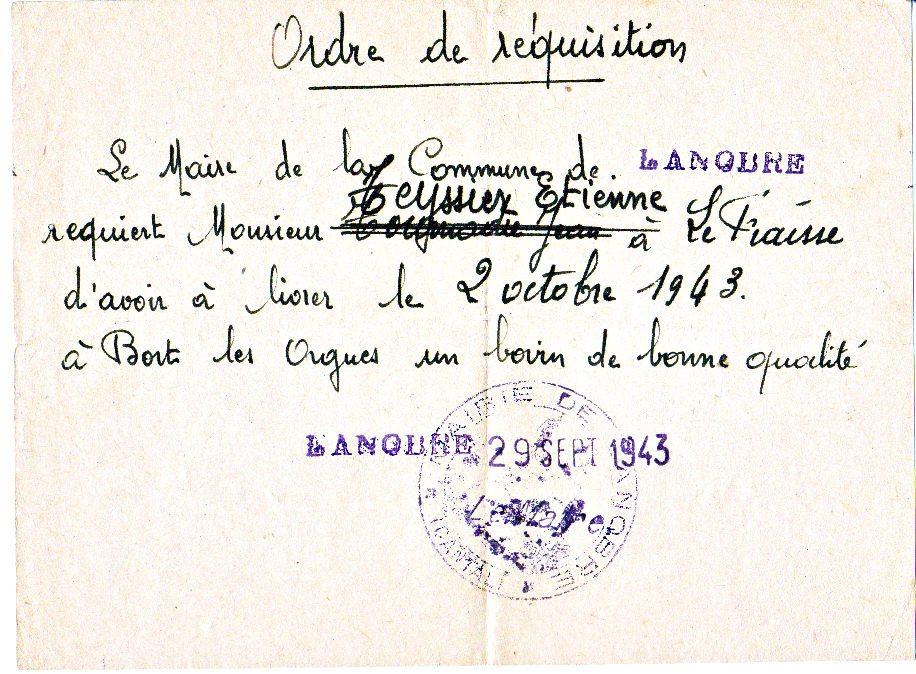 Ordre de réquisition
Le Maire de la Commune de LANOBRE
Teyssier Etienne
requiert Monsieur à Le Fraisse
d'avoir à livrer le 2 octobre 1943.
à Bort les Orgues un bovin de bonne qualité
LANOBRE 29 SEPT 1943
MAIRIE DE LANOBRE
(CANTAL)
Le Maire